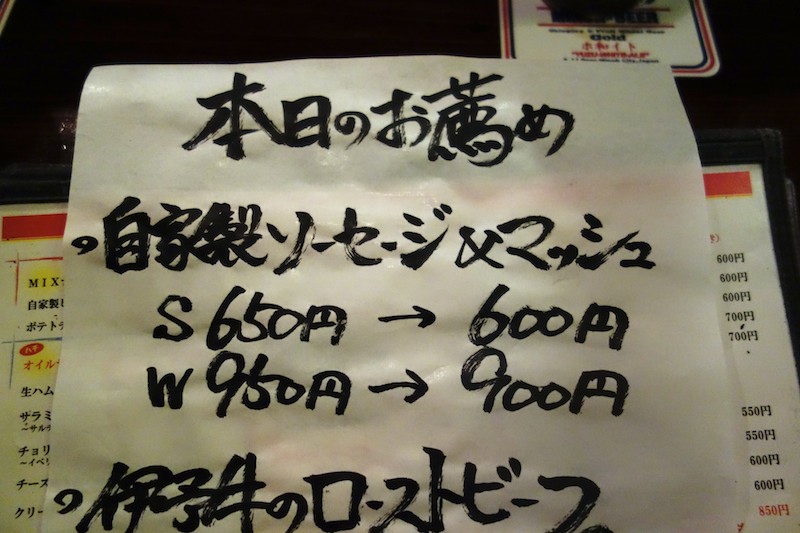 Gold
ホワイト
本日のお薦め
自家製ソーセージ&マッシュ
S 650円 → 600円
W 950円 → 900円
伊予牛のローストビーフ
MIX
自家製
ポテト
オイル
生ハム
サラミ
チョリ
チーズ
クリー
600円
600円
600円
700円
700円
550円
550円
600円
600円
850円